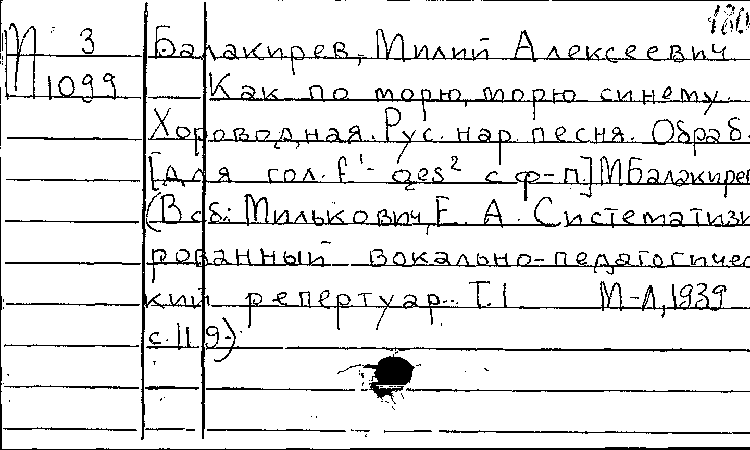 180
М 3
1099
Балакирев, Милий Алексеевич
Как по морю, морю синему.
Хороводная. Рус. нар. песня. Обраб.
[для гол. f¹- ges² с ф-п] М Балакирев
(В сб: Милькович, Е. А. Системати
рованный вокально-педагогичес
кий репертуар. Т. 1. М-Л, 1939
с. 119)